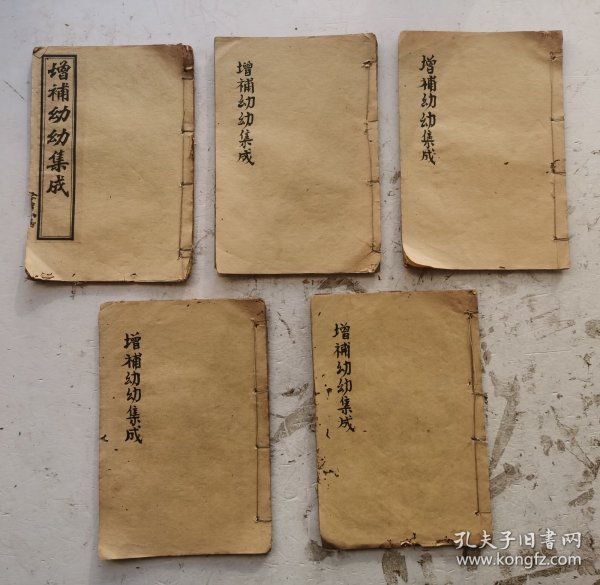 增補幼幼集成
增補幼幼集成
增補幼幼集成
增補幼幼集成
增補幼幼集成
孔夫子旧书网
www.kongfz.com